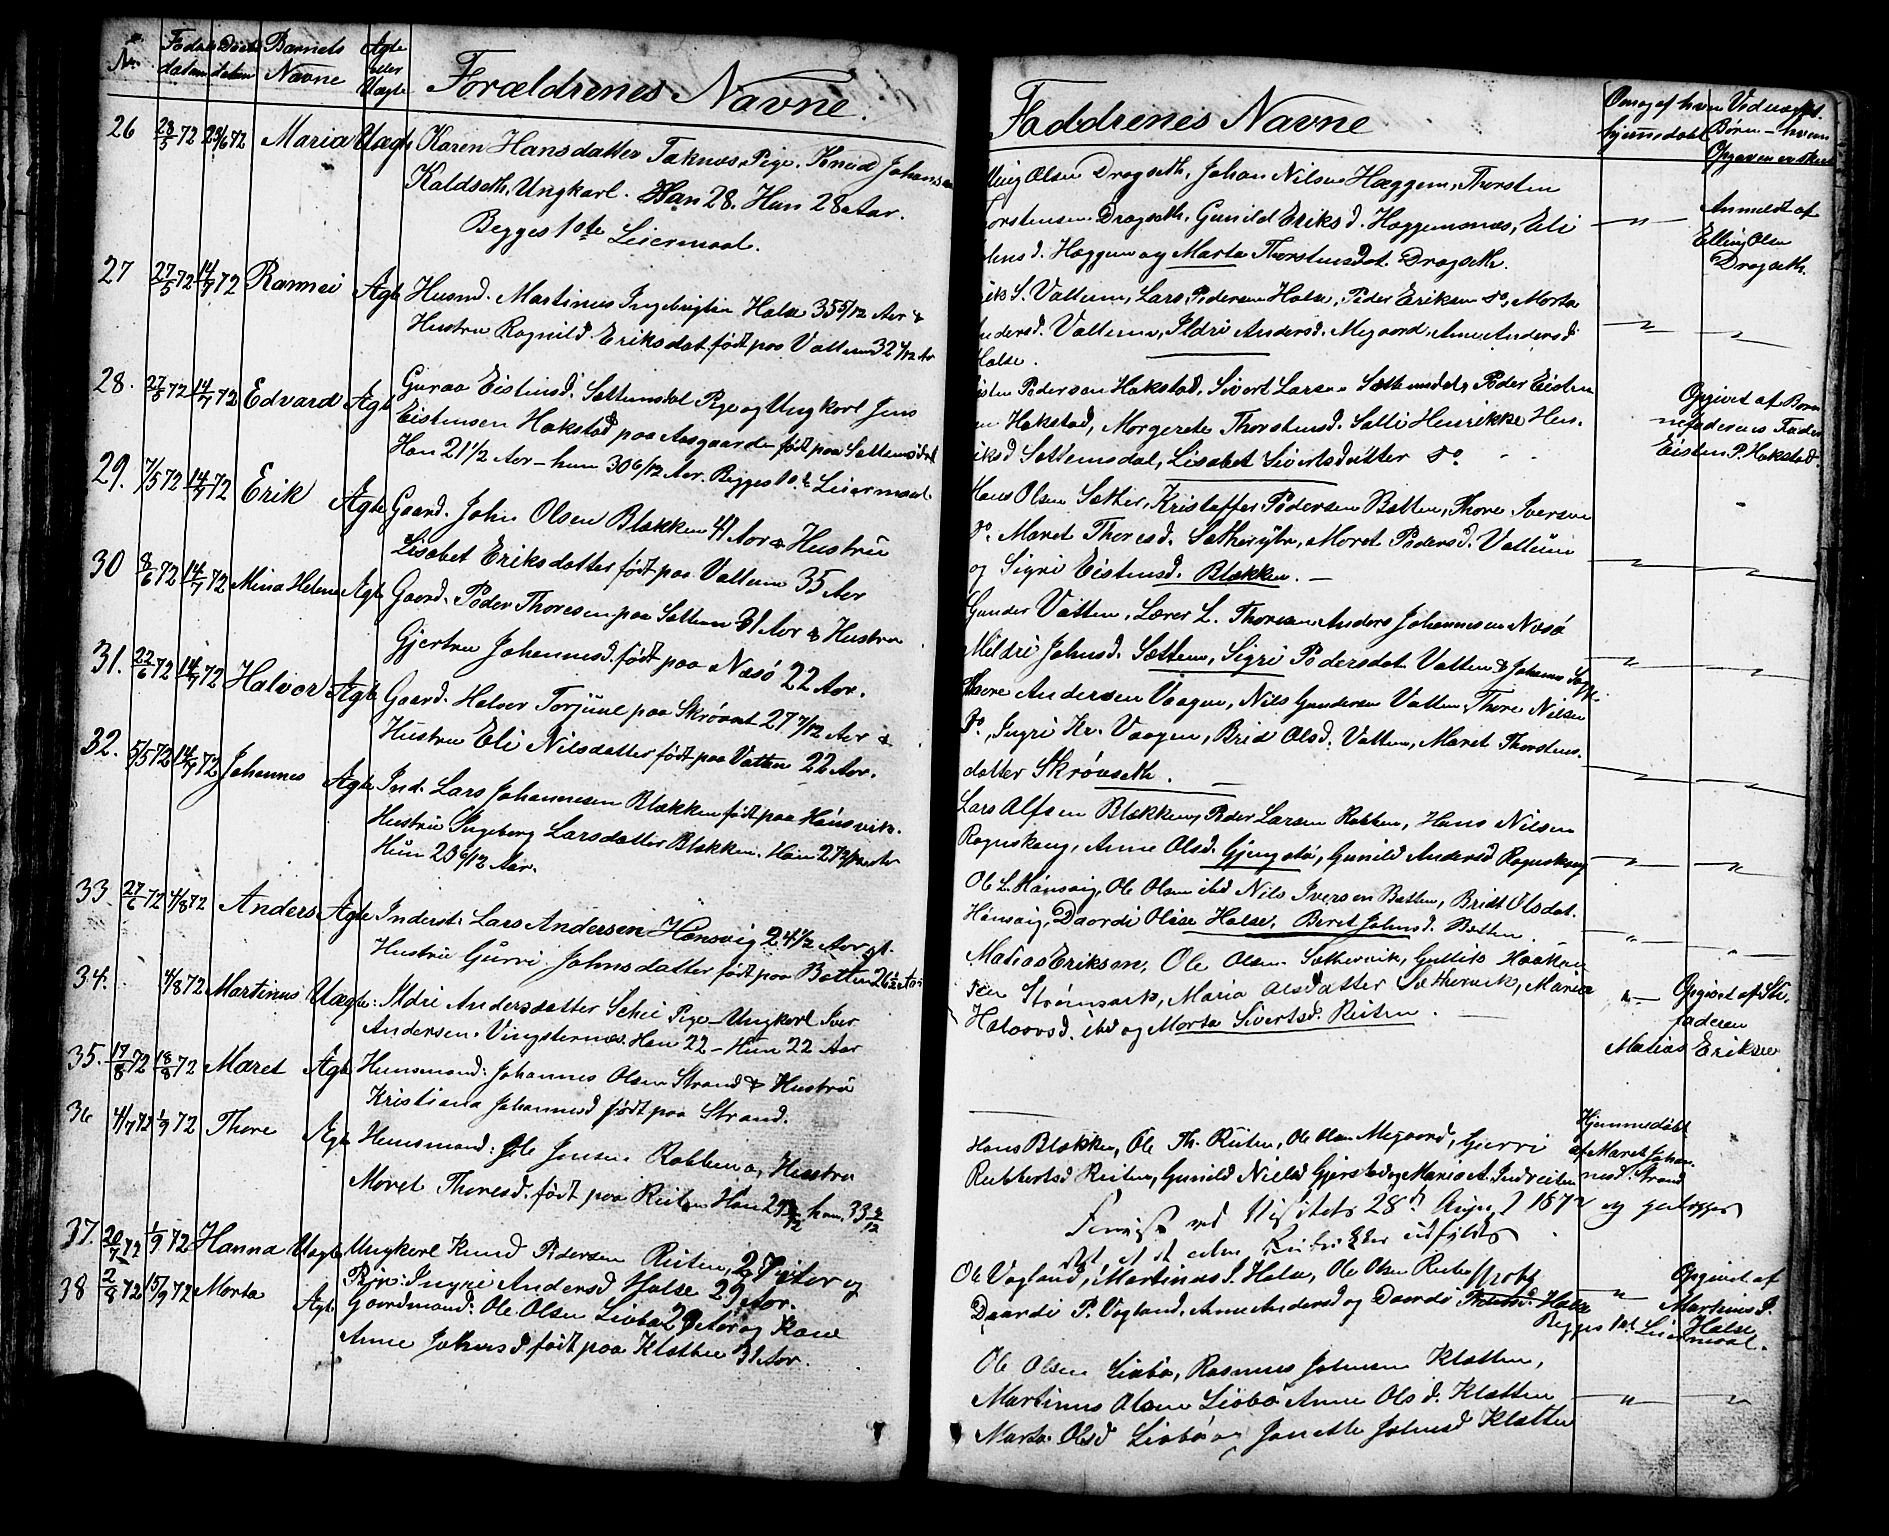 No
Fødsels
datum
Daabs
datum
Barnets
Navne
Ægte
eller
Uægte
Forældrenes Navne.
26 28/5 72 23/6 72 Maria Uægt Karen Hansdatter Taknæs Pige. Knud Johansen
Kaldseth, Ungkarl. Han 28. Hun 28 Aar.
Begges 1ste Leiermaal.
27 27/5 72 14/7 72 Rannei Ægt Husmd. Martinus Ingebrigtsen Halse 35 5/12 Aar &
Hustru Ragnild Eriksdat. født paa Vatten 32 4/12 Ar
28. 27/5 72 14/7 72 Edvard Ægt Guraa Eistensd. Sættemsdal Pige og Ungkarl Jens
Eistensen Hakstad paa Aasgaarden født paa Sættemsdal
Han 21 1/2 Aar – hun 30 6/12 Aar. Begges 1ste Leiermaal.
29. 7/5 72 14/7 72 Erik Ægte Gaard. John Olsen Blækken 41 Aar & Hustru
Lisabet Eriksdatter født paa Vatten 35 Aar
30 8/6 72 14/7 72 Mina Helene Ægt Gaard. Peder Thoresen paa Sættem 31 Aar & Hustru
Gjertru Johannesd. født paa Næsø 22 Aar.
31. 22/6 72 14/7 72 Halvor Ægte Gaard. Halvor Torjuul paa Skrøvset 27 7/12 Aar &
Hustru Eli Nilsdatter født paa Vatten 22 Aar.
32. 5/5 72 14/7 72 Johannes Ægte Ind. Lars Johannesen Blækken født paa Hansvik.
Hustru Ingeborg Larsdatter Blækken. Han
Hun 20 6/12 Aar.
33 27/6 72 4/8 72 Anders Ægte Inderst: Lars Andersen Hønsvig 24 1/2 Aar og
Hustru Gurri Johnsdatter født paa Batten 26 1/2 Aar
34. 4/8 72 Martinus Uægte: Ildri Andersdatter Schei Pige – Ungkarl Iver
Andersen Vingsternes. Han 22 – Hun 22 Aar
35. 17/8 72 18/8 72 Maret Ægt Husmand: Johannes Olsen Strand & Hustru
Kristiana Johannesd født paa Strand.
36 4/7 72 1/9 72 Thore Ægte Husmand: Ole Jensen Rabben og Hustru
Maret Thoresd. født paa Ruten Han hun 33
37. 20/7 72 1/9 72 Hanna Uægte Ungkarl Knud Pedersen Ruten, 27 Aar og
Pige: Ingri Andersd Halse 29 Aar.
38 2/8 72 15/9 72 Marta Ægte Gaardmand: Ole Olsen Liabø 29 Aar og Kone
Anne Johnsd født paa Klætten 31 Aar.
Faddrenes Navne
Om og af hvem
hjemmedøbt
Ved uægte
Børn – hvem
Opgaven er skeet
Elling Olsen Dragseth, Johan Nilsen Hæggem, Thorsten
Thorstensen Dragseth. Gunild Eriksd. Hæggemsnæs, Eli
Johnsd. Hæggem og Marta Thorstensdat. Dragseth. — " —
Anmeldt af
Elling Olsen
Dragseth.
Erik S. Vatten, Lars Pedersen Halse, Peder Eriksen Do, Marta
Andersd. Vatten, Ildri Andersd. Megaard, Anne Andersd
Halse.
Eisten Pedersen Hakstad, Sivert Larsen Sættemsdal, Peder Eisten
sen Hakstad, Margrete Thorstensd. Sætti Henrikke Hen-
riksd Sættemsdal, Lisabet Sivertsdatter Do
Opgivet af Bar
nefaderens Fader
Eisten P. Hakstad.
Hans Olsen Sæther, Kristoffer Pedersen Batten, Thore Iversen
Do. Maret Thoresd. Sætherøs, Maret Pedersd. Vatten
og Sigri Eistensd. Blækken. —
Gunder Vatten, Lærer L. Thoresen, Anders Johannesen Næsø
Mildri Johnsd. Sættem, Sigri Pedersdat Vatten & Johanna
Thore Andersen Vaagen, Nils Gundersen Vatten, Thore Nilsen
Do, Ingri Kr. Vaagen, Brid Olsd. Vatten, Maret Thorstens-
datter Skrøvseth. —
Lars Alfsen Blækken, Peder Larsen Rabben, Hans Nilsen
Rognskoug, Anne Olsd. Gjengstø, Gunild Andersd Rognskoug
Ole L. Hønsvig, Ole Olsen ibd Nils Iversen Batten, Bridt Olsdat.
Hønsvig, Daardi Olise Halse, Beret Johnsd. Batten.
Matias Eriksen, Ole Olsen Sæthervik, Gullik Haakon
sen Strømsvik, Maria Olsdatter Sæthervik, Maria
Halvorsd. ibd og Marta Sivertsd. Ruten. —
" —
Opgivet af Sti-
faderen
Matias Eriksen
Hans Blækken, Ole Th. Ruten, Ole Olsen Megaard, Gjerri
Rubbertsd Ruten, Gunild Nielsd Gjerstad og Maria
Hjemmedøbt
af Maret Johan-
nesd. Strand
ved Visitats 28de August 1872
Ole Vagland, Martinus I. Halse, Ole Olsen Ruten
Daardi P. Vagland, Anne Andersd og Daardi Pedersd. Halse
Begges 1ste Leiermaal.
Opgivet af
Martinus I.
Halse
Ole Olsen Liabø, Rasmus Johnsen Klætten,
Martinus Olsen Liabø Anne Olsd. Klætten
Marta Olsd Liabø og Janette Johnsd Klætten